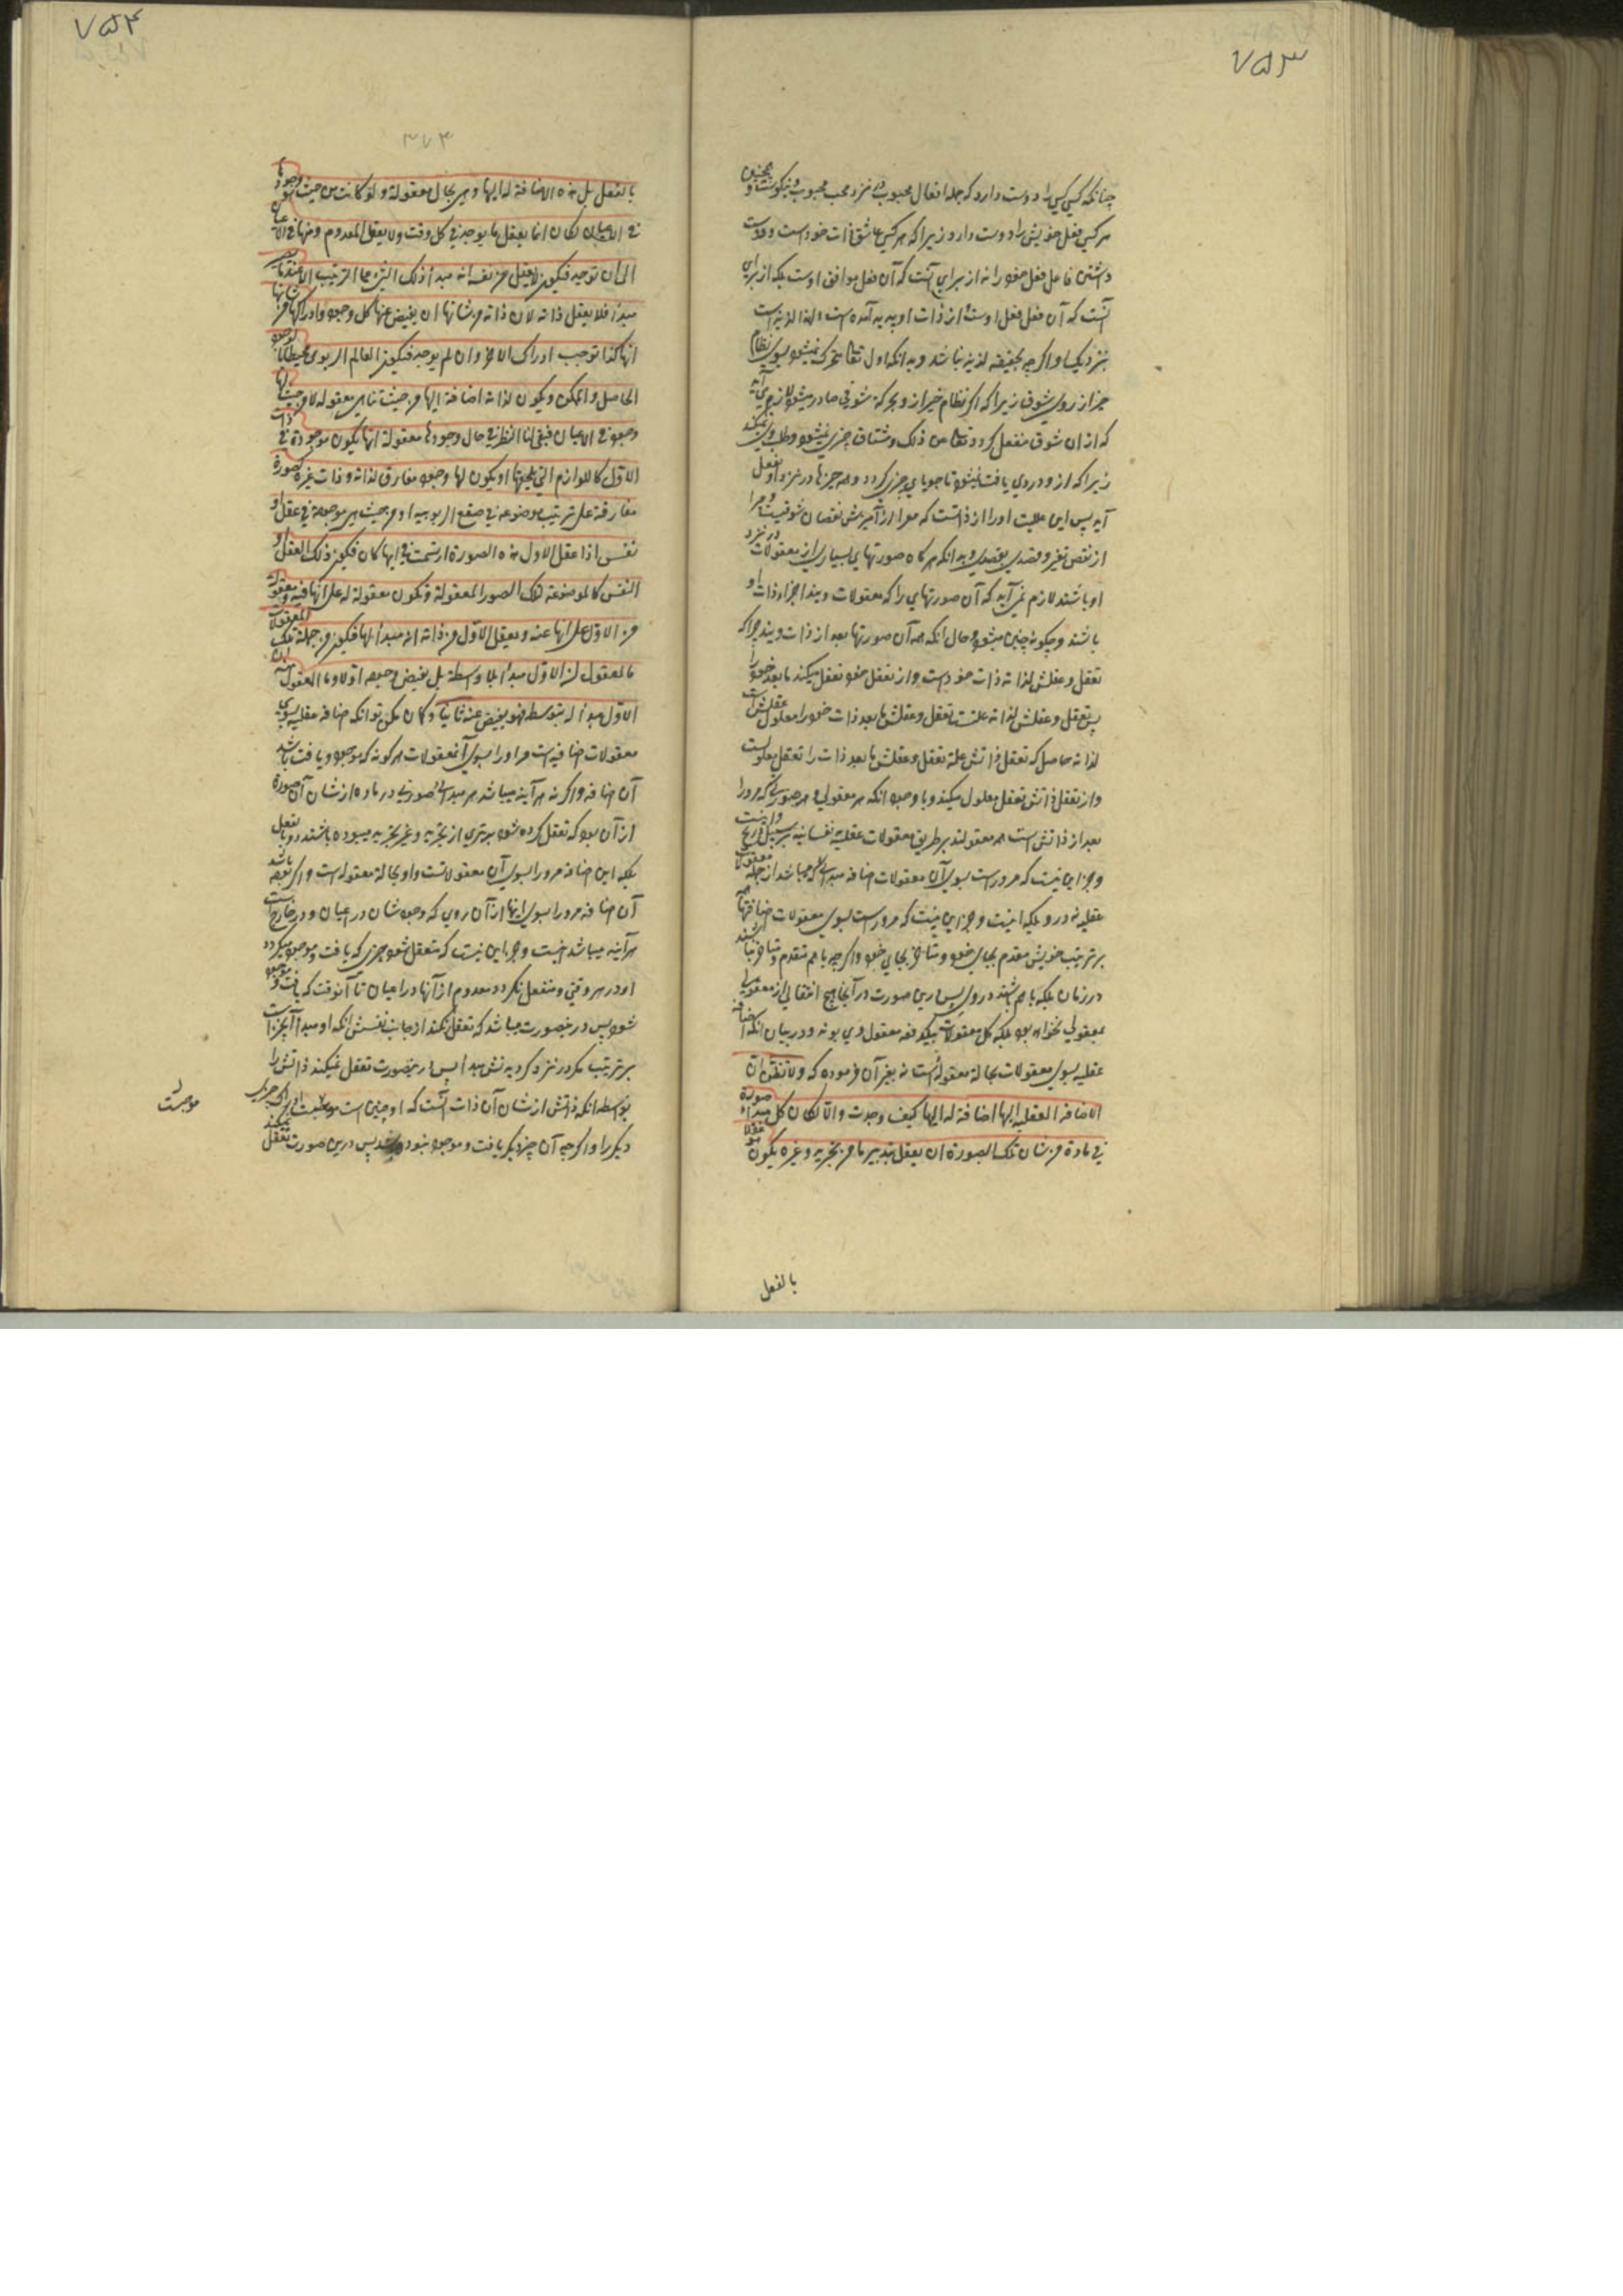 ۷۵۳
چنانکه کسی کسی را دوست دارد که جمله افعال محبوب نزد محب محبوب و نیکوست و همچنین
هر کس فعل خویش را دوست دارد زیرا که هر کس عاشق ذات خود است و دوست
داشتن فاعل فعل خود را نه از برای آنست که آن فعل موافق اوست بلکه از برای
آنست که آن فعل فعل اوست و از ذات او پدید آمده است لهذا لذیذ است
بنزدیک او اگرچه بحقیقه لذیذ نباشد و بدانکه اول تعالی متحرک نمیشود بسوی نظام
خیر از روی شوق زیرا که اگر نظام خیر از وی بحرکة شوقی صادر میشود لازم می آید
که از آن شوق منفعل گردد تعالی عن ذلک و مشتاق چیزی نمیشود و طلب وی نمیکند
زیرا که ازو دردی یافت نمیشود تا جویای چیزی گردد و همه چیزها در نزد او بفعل
آید پس این علیت او را از ذاتست که معرا از آمیزش نقصان شوقیست و مبرا
از نقص تغیر و قصدی بقصدی و بدانکه هرگاه صورتهای بسیاری از معقولات در نزد
او باشند لازم نمی آید که آن صورتهایی را که معقولات ویند اجزاء ذات او
باشند و چگونه چنین میشود و حال آنکه همه آن صورتها بعد از ذات ویند چرا که
تعقل و عقلش لذاته ذات خود است و از تعقل خود تعقل میکند ما بعد خود را
پس تعقل و عقلش لذاته علت تعقل و عقلش ما بعد ذات خود را معلول عقلش است
لذاته حاصل که تعقل ذاتش علة تعقل و عقلش ما بعد ذات را تعقل معلولست
و از تعقل ذاتش تعقل معلول میکند و با وجود آنکه هر معقولی و هر صورتی که مر او را
بعد از ذاتش است همه معقولند بر طریق معقولات عقلیه نفسانیه بر سبیل تدریج
و جز این نیست که مر او راست بسوی آن معقولات اضافه مبدائی که میباشد از جمله معقولات
عقلیه نه درو بلکه اینست و جز این نیست که مر او راست بسوی معقولات اضافتها
بر ترتیب خویش مقدم بجای خود و متاخر بجای خود و اگرچه با هم متقدم و متاخر نباشند
در زمان بلکه با هم باشند در وی پس درین صورت در آنجا هیچ انتقالی از معقولی
بمعقولی نخواهد بود بلکه کل معقولات بیکدفعه معقول وی بوند و در بیان آنکه اضافه
عقلیه بسوی معقولات بحالة معقوله است نه بغیر آن فرموده که ولا تظن ان
الاضافة العقلیه الیها اضافة له الیها کیف وجدت والا لکان کل مبداء صورة
فی مادة من شان تلک الصورة ان یعقل بتدبیر ما من تجرید و غیره یکون هو عقلا
بالفعل
۷۵۴
۳۷۴
بالفعل بل هذه الاضافة له الیها و هی بحال معقولة و لو کانت من حیث وجودها
فی الاعیان لکان انما یعقل ما یوجد فی کل وقت و لا یعقل المعدوم منها فی الاعیان
الی ان توجد فیکون لا یعقل من نفسه انه مبدأ ذلک الشیء علی الترتیب الا عند ما یصیر
مبدأ فلا یعقل ذاته لان ذاته من شانها ان یفیض عنها کل وجود و ادراکها من شانها
انها کذا توجب ادراک الاخر و ان لم یوجد فیکون العالم الربوبی محیطا بالوجود
الحاصل و الممکن و یکون لذاته اضافة الیها من حیث هی معقولة لا من حیث لها
وجود فی الاعیان فبقی لنا النظر فی حال وجودها معقولة انها یکون موجودة فی ذات
الاول کاللوازم التی تلحقها او یکون لها وجود مفارق لذاته و ذات غیره کصورة
مفارقة علی ترتیب موضوعه فی صقع الربوبیه او من حیث هی موجودة فی عقل او
نفس اذا عقل الاول هذه الصورة ارتسمت فی ایها کان فیکون ذلک العقل او
النفس کالموضوعة لتلک الصور المعقولة و تکون معقولة له علی انها فیه و معقولة
من الاول علی انها عنه و یعقل الاول من ذاته انه مبدأ لها فیکون من جملة تلک المعقولات
ما المعقول منه ان الاول مبدأ له بلا واسطة بل یفیض وجوده اولا و ما المعقول منه ان
الاول مبدأ له بتوسط فهو یفیض عنه ثانیا و گمان مکن تو آنکه اضافه عقلیه بسوی
معقولات اضافه ایست مر او را بسوی آن معقولات هرگونه که موجود و یافت باشد
آن اضافه و اگر نه هرآینه میباشد هر مبداء صورتی در ماده از شان آن صورة
از آن بود که تعقل کرده شود بتدبیری از تجرید و غیر تجرید میبوده باشند و بالفعل
بلکه این اضافه مر او را بسوی آن معقولاتست و او بحالة معقوله است و اگر باشد
آن اضافه مر او را بسوی اینها از آن روی که وجودشان در اعیان و در خارج است
هرآینه میباشد اینست و جز این نیست که متعقل شود چیزی که یافت و موجود میگردد
او در هر وقتی و متعقل نگردد معدوم از آنها در اعیان تا آنوقت که یافت و موجود
شود پس درینصورت میباشد که تعقل نکند از جانب نفسش آنکه او مبدأ آنچیز است
بر ترتیب مگر در نزد گردیدنش مبدأ پس درینصورت تعقل نمیکند ذاتش را
بواسطه آنکه ذاتش از شان آن ذات آنست که او چنین است موجبست ادراک چیزی
دیگر را و اگرچه آن چیز دیگر یافت و موجود نبوده باشد پس درین صورت تعقل نمیکند
موجبست